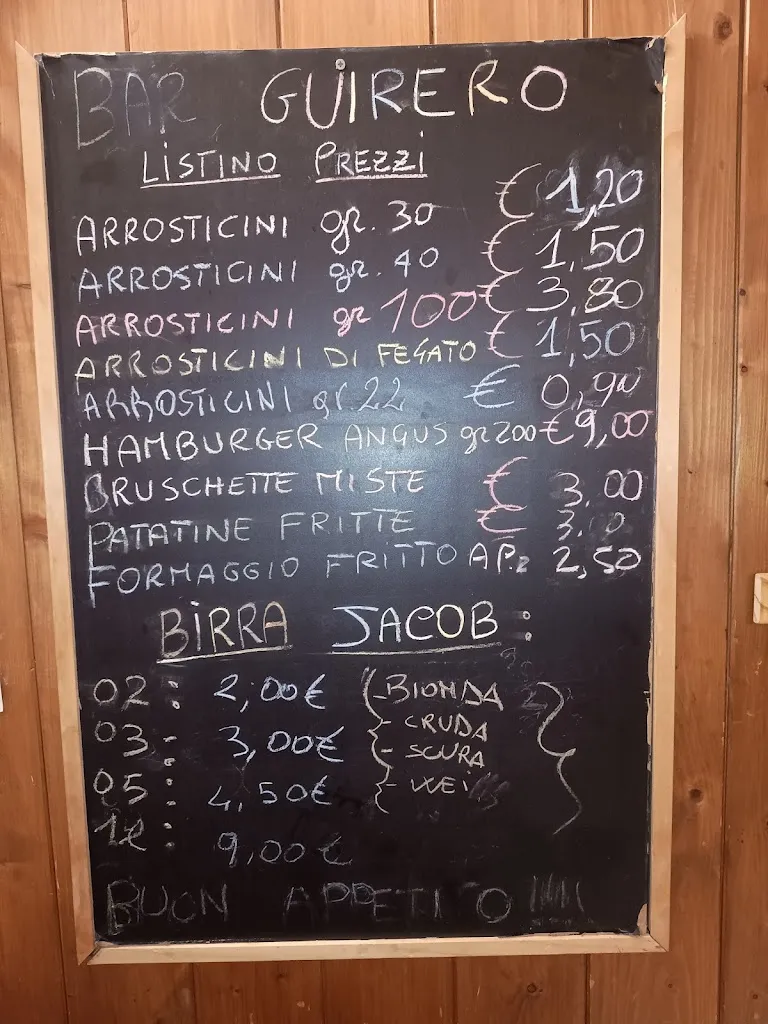 BAR GUIRERO
LISTINO PREZZI
ARROSTICINI gr. 30 € 1,20
ARROSTICINI gr. 40 € 1,50
ARROSTICINI gr 100 € 3,80
ARROSTICINI DI FEGATO € 1,50
ARROSTICINI gr. 22 € 0,90
HAMBURGER ANGUS gr 200 € 9,00
BRUSCHETTE MISTE € 3,00
PATATINE FRITTE €
FORMAGGIO FRITTO A P.z 2,50
BIRRA JACOB :
02 : 2,00 € - BIONDA
03 - 3,00 € - CRUDA
- SCURA
05 : 4,50 € - WEISS
1l : 9,00 €
BUON APPETITO !!!!